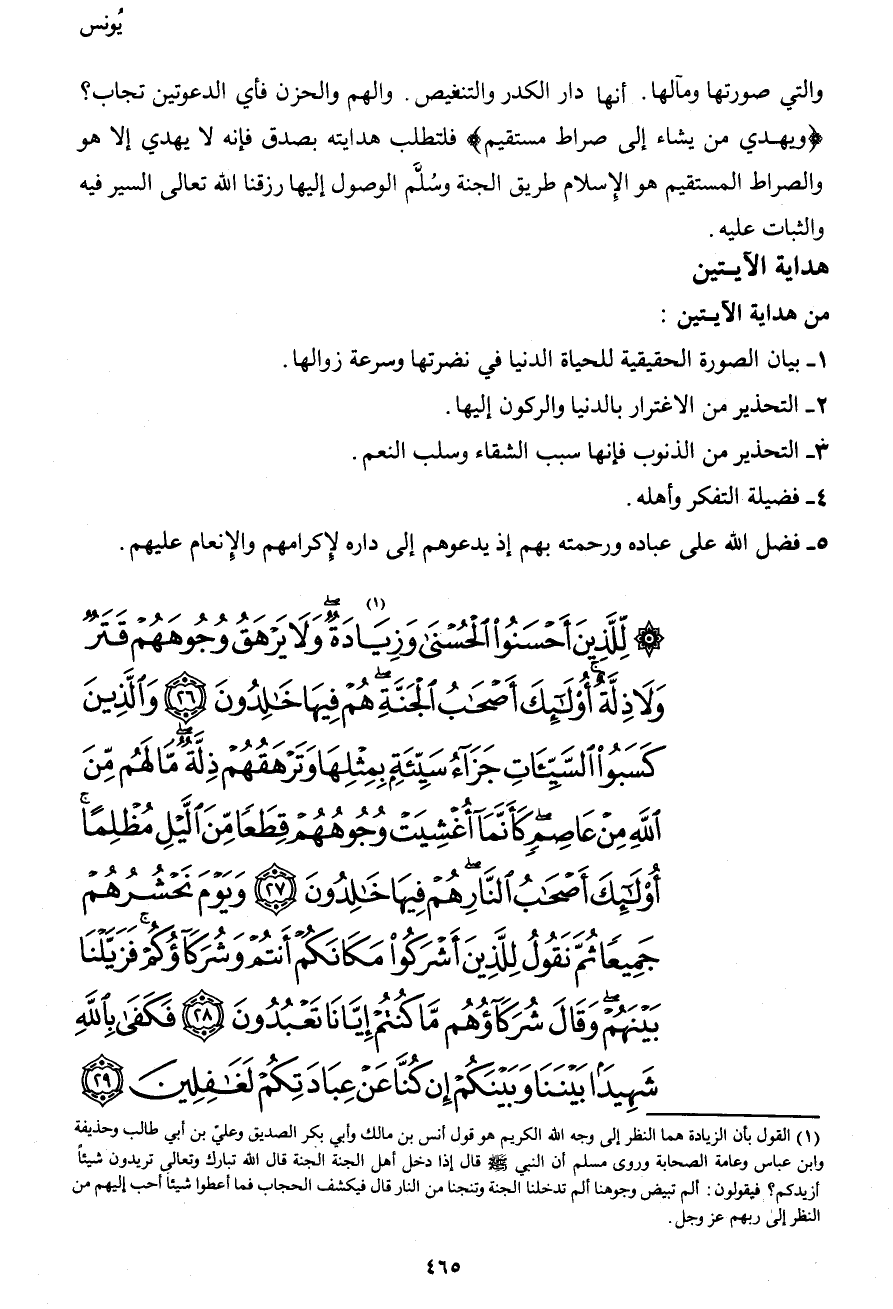 يُونس
والتي صورتها ومآلها. أنها دار الكدر والتنغيص. والهم والحزن فأي الدعوتين تجاب؟
﴿ويهـدي من يشاء إلى صراط مستقيم﴾ فلتطلب هدايته بصدق فإنه لا يهدي إلا هو
والصراط المستقيم هو الإسلام طريق الجنة وسُلَّم الوصول إليها رزقنا الله تعالى السير فيه
والثبات عليه.
هداية الآيـتين
من هداية الآيـتين :
١ـ بيان الصورة الحقيقية للحياة الدنيا في نضرتها وسرعة زوالها.
٢ـ التحذير من الاغترار بالدنيا والركون إليها.
٣ـ التحذير من الذنوب فإنها سبب الشقاء وسلب النعم.
٤ـ فضيلة التفكر وأهله.
٥ـ فضل الله على عباده ورحمته بهم إذ يدعوهم إلى داره لإكرامهم والإنعام عليهم.
۞ لِّلَّذِينَ أَحْسَنُوا۟ ٱلْحُسْنَىٰ وَزِيَادَةٌۖ (١) وَلَا يَرْهَقُ وُجُوهَهُمْ قَتَرٌ
وَلَا ذِلَّةٌۚ أُو۟لَٰٓئِكَ أَصْحَٰبُ ٱلْجَنَّةِۖ هُمْ فِيهَا خَٰلِدُونَ ٢٦ وَٱلَّذِينَ
كَسَبُوا۟ ٱلسَّيِّـَٔاتِ جَزَآءُ سَيِّئَةٍۭ بِمِثْلِهَا وَتَرْهَقُهُمْ ذِلَّةٌۖ مَّا لَهُم مِّنَ
ٱللَّهِ مِنْ عَاصِمٍۖ كَأَنَّمَآ أُغْشِيَتْ وُجُوهُهُمْ قِطَعًا مِّنَ ٱلَّيْلِ مُظْلِمًاۚ
أُو۟لَٰٓئِكَ أَصْحَٰبُ ٱلنَّارِۖ هُمْ فِيهَا خَٰلِدُونَ ٢٧ وَيَوْمَ نَحْشُرُهُمْ
جَمِيعًا ثُمَّ نَقُولُ لِلَّذِينَ أَشْرَكُوا۟ مَكَانَكُمْ أَنتُمْ وَشُرَكَآؤُكُمْۚ فَزَيَّلْنَا
بَيْنَهُمْۖ وَقَالَ شُرَكَآؤُهُم مَّا كُنتُمْ إِيَّانَا تَعْبُدُونَ ٢٨ فَكَفَىٰ بِٱللَّهِ
شَهِيدًۢا بَيْنَنَا وَبَيْنَكُمْ إِن كُنَّا عَنْ عِبَادَتِكُمْ لَغَٰفِلِينَ ٢٩
(١) القول بأن الزيادة هما النظر إلى وجه الله الكريم هو قول أنس بن مالك وأبي بكر الصديق وعليّ بن أبي طالب وحذيفة
وابن عباس وعامة الصحابة وروى مسلم أن النبي ﷺ قال إذا دخل أهل الجنة الجنة قال الله تبارك وتعالى تريدون شيئاً
أزيدكم؟ فيقولون: ألم تبيض وجوهنا ألم تدخلنا الجنة وتنجنا من النار قال فيكشف الحجاب فما أعطوا شيئاً أحب إليهم من
النظر إلى ربهم عز وجل.
٤٦٥